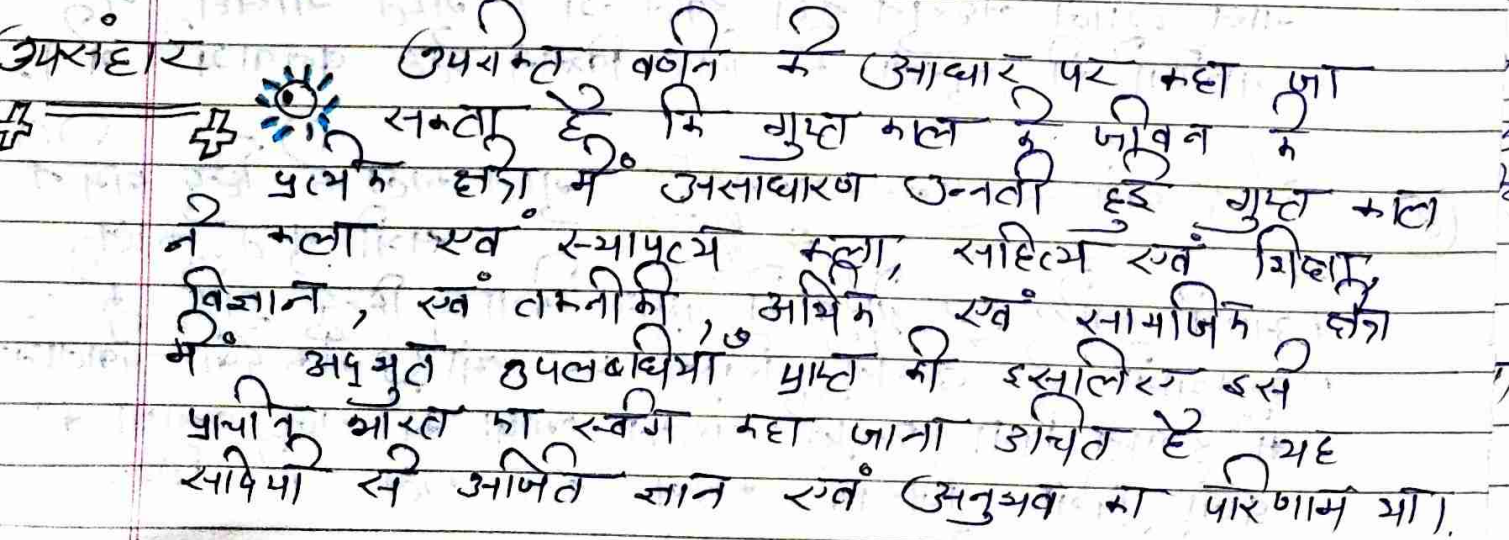 उपसंहार उपरोक्त वर्णन के आधार पर कहा जा
सकता है कि गुप्त काल के जीवन के
प्रत्येक क्षेत्र में असाधारण उन्नती हुई गुप्त काल
ने कला एवं स्थापत्य कला, साहित्य एवं शिक्षा,
विज्ञान, एवं तकनीकी, आर्थिक एवं सामाजिक क्षेत्र
में अद्भुत उपलबधियाँ प्राप्त की इसलिए इसे
प्राचीन भारत का स्वर्ग कहा जाना उचित है यह
सदियों से अर्जित ज्ञान एवं अनुभव का परिणाम था।